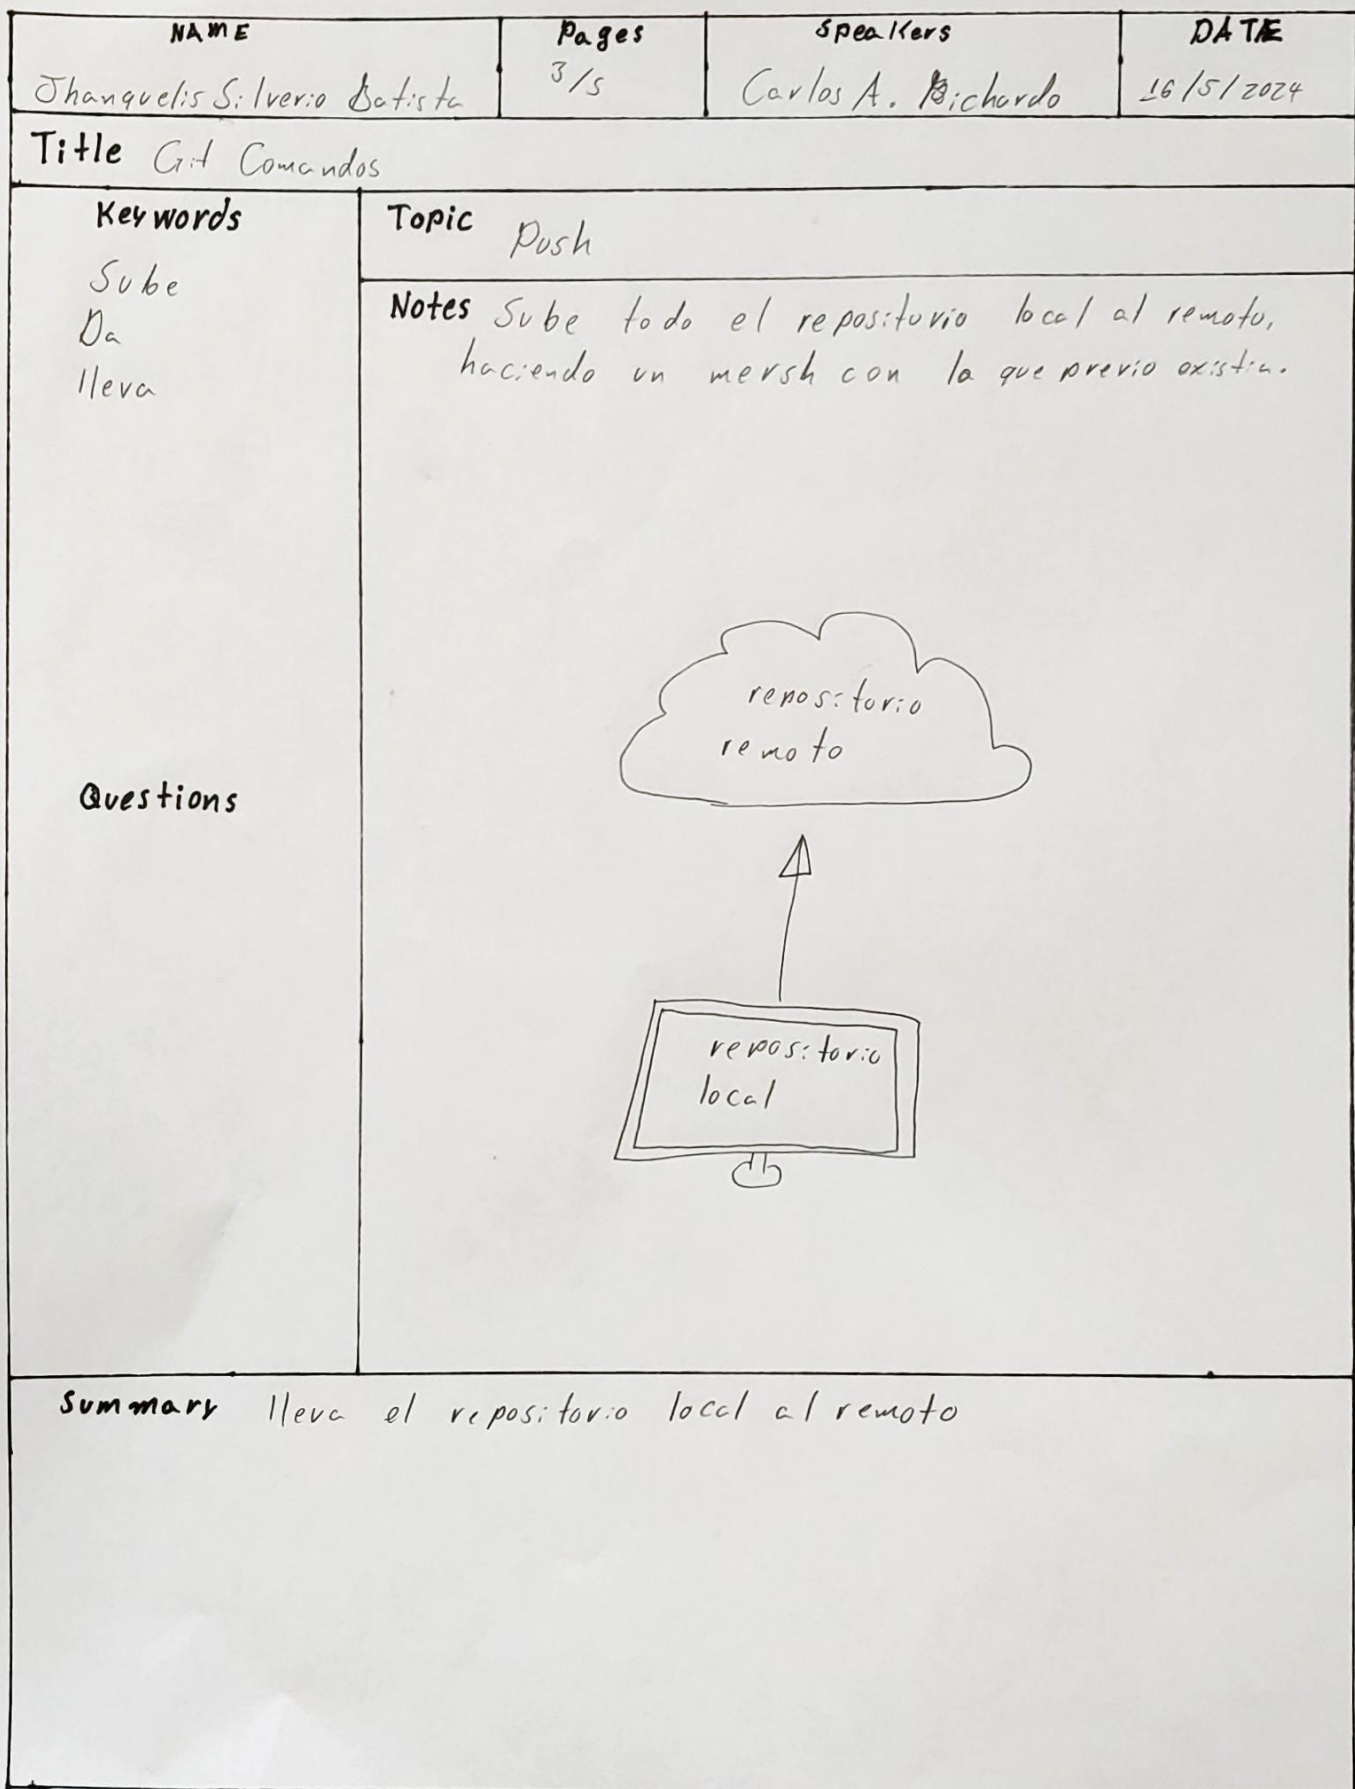 NAME
Jhanquelis Silverio Batista
Pages
3/5
Speakers
Carlos A. Bichardo
DATE
16/5/2024
Title Git Comandos
Keywords
Sube
Da
lleva
Questions
Topic Push
Notes Sube todo el repositorio local al remoto,
haciendo un mersh con lo que previo existia.
repositorio
remoto
repositorio
local
Summary lleva el repositorio local al remoto